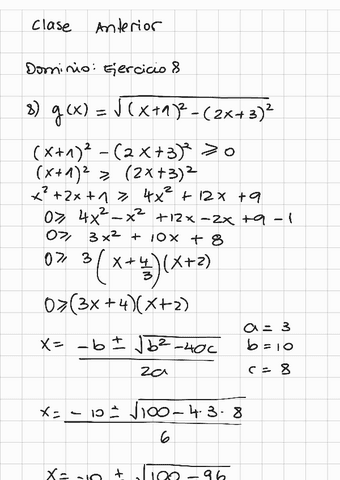 Clase Anterior
Dominio: Ejercicio 8
8) g(x) = √((x+1)² - (2x+3)²)
(x+1)² - (2x+3)² ⩾ 0
(x+1)² ⩾ (2x+3)²
x² + 2x + 1 ⩾ 4x² + 12x + 9
0 ⩾ 4x² - x² + 12x - 2x + 9 - 1
0 ⩾ 3x² + 10x + 8
0 ⩾ 3 (x + 4/3)(x+2)
0 ⩾ (3x+4)(x+2)
x = (-b ± √(b² - 4ac)) / 2a
a = 3
b = 10
c = 8
x = (-10 ± √(100 - 4·3·8)) / 6
x = -10 ± √(100 - 96)